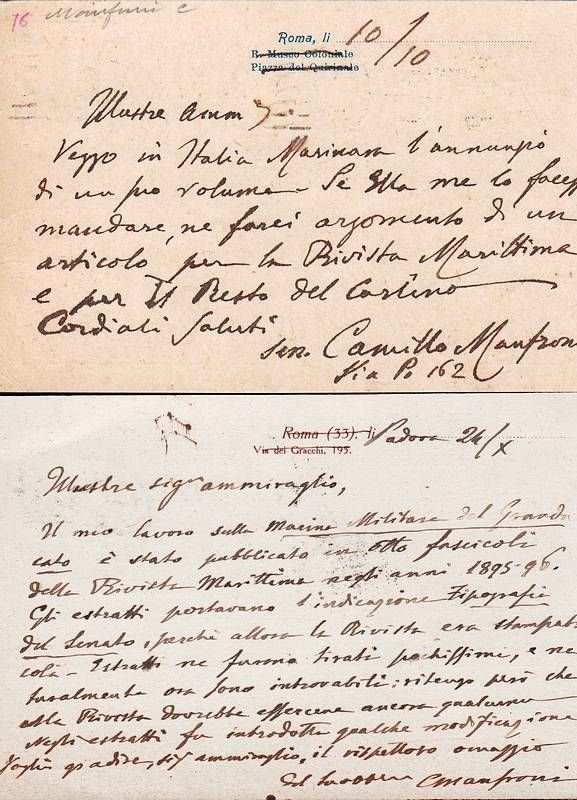 16 Manfroni C
Roma, lì 10/10
R. Museo Coloniale
Piazza del Quirinale
Illustre Amm
Veggo in Italia Marinara l'annunzio
di un suo volume. Se Ella me lo facesse
mandare, ne farei argomento di un
articolo per la Rivista Marittima
e per Il Resto del Carlino
Cordiali saluti
sen. Camillo Manfroni
Via Po 162
Roma (33), lì Padova 24/X
Via dei Gracchi, 195.
Illustre sigr ammiraglio,
Il mio lavoro sulla Marina Militare del Grandu
cato è stato pubblicato in otto fascicoli
della Rivista Marittima negli anni 1895-96.
Gli estratti portavano l'indicazione Tipografia
del Senato, perchè allora la Rivista era stampata
colà - Estratti ne furono tirati pochissimi, e na
turalmente ora sono introvabili: ritengo però che
alla Rivista dovrebbe essercene ancora qualcuno
Negli estratti fu introdotta qualche modificazione
Voglia gradire, sigr ammiraglio, il rispettoso omaggio
del suo CManfroni